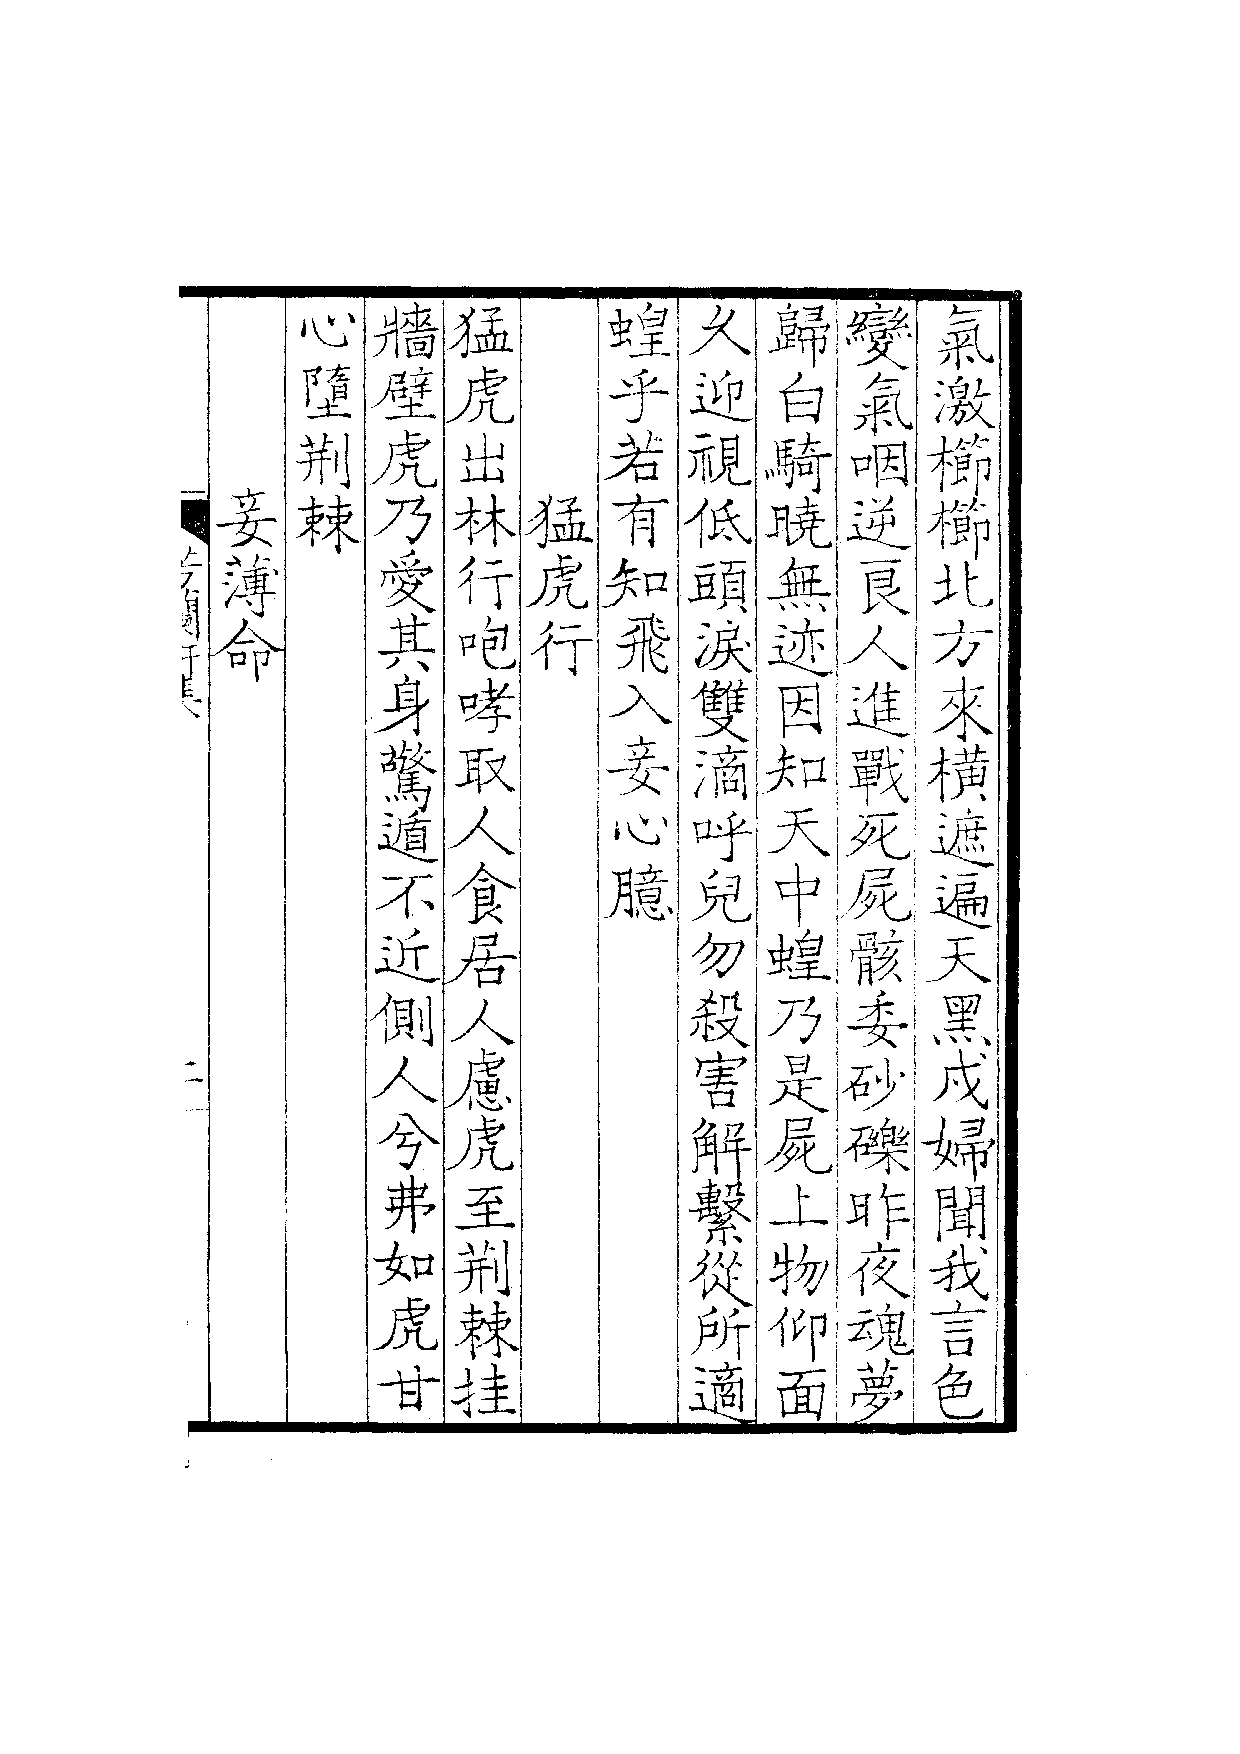 氣激櫛櫛北方來橫遮遍天黑戍婦聞我言色
變氣咽逆良人進戰死屍骸委砂礫昨夜魂夢
歸白騎曉無迹因知天中蝗乃是屍上物仰面
久迎視低頭淚雙滴呼兒勿殺害解繫從所適
蝗乎若有知飛入妾心臆
猛虎行
猛虎出林行咆哮取人食居人慮虎至荆棘挂
牆壁虎乃愛其身驚遁不近側人兮弗如虎甘
心墮荆棘
妾薄命
芝蘭軒集
二